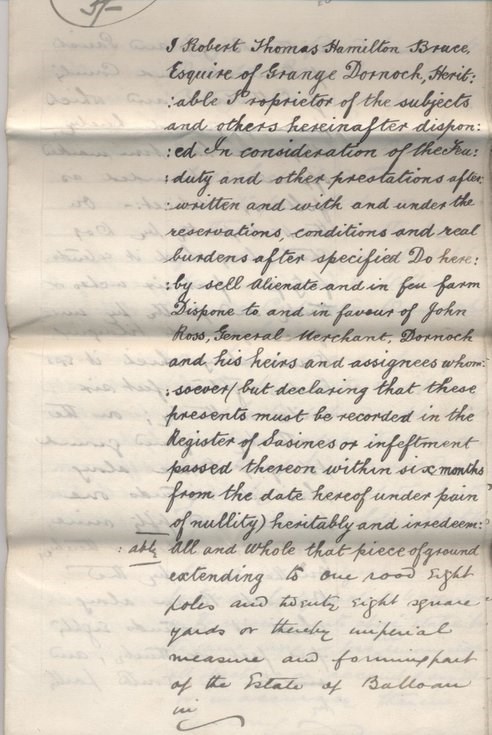 I Robert Thomas Hamilton Bruce,
Esquire of Grange Dornoch, Herit:
:able Proprietor of the subjects
and others hereinafter dispon:
:ed In consideration of the Feu:
:duty and other prestations after:
:written and with and under the
reservations, conditions and real
burdens after specified Do here:
:by sell Alienate and in feu farm
Dispone to and in favour of John
Ross, General Merchant, Dornoch
and his heirs and assignees whom:
:soever (but declaring that these
presents must be recorded in the
Register of Sasines or infeftment
passed thereon within six months
from the date hereof under pain
of nullity) heritably and irredeem:
:ably All and Whole that piece of ground
extending to one rood eight
poles and twenty eight square
yards or thereby imperial
measure and forming part
of the Estate of Balloan
in